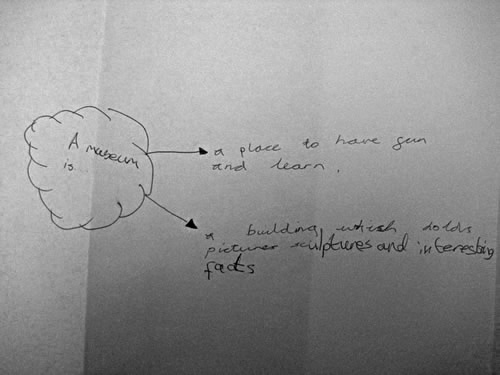 A museum
is...
a place to have fun
and learn.
a building which holds
pictures sculptures and interesting
facts